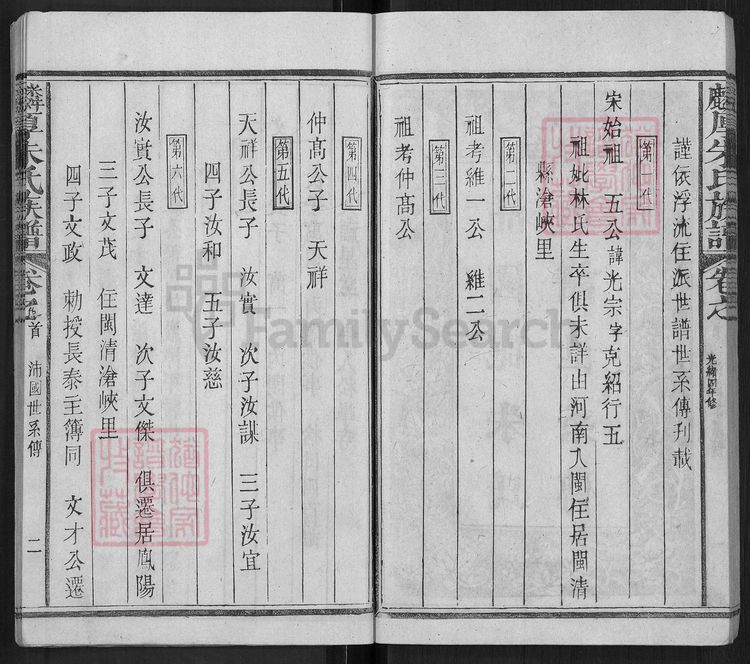 麟厚朱氏族譜 卷之
光緒四年修
謹依浮流住派世譜世系傳刊載
第一代
宋始祖 五公諱光宗字克紹行五
祖妣林氏生卒俱未詳由河南入閩住居閩清
縣滄峽里
第二代
祖考維一公 維二公
第三代
祖考仲高公
第四代
仲高公子 天祥
第五代
天祥公長子 汝實 次子汝謀 三子汝宜
四子汝和 五子汝慈
第六代
汝實公長子 文達 次子文傑 俱遷居鳳陽
三子文茂 住閩清滄峽里
四子文政 勅授長泰主簿同 文才公遷
麟厚朱氏族譜 卷之首 沛國世系傳 二
FamilySearch